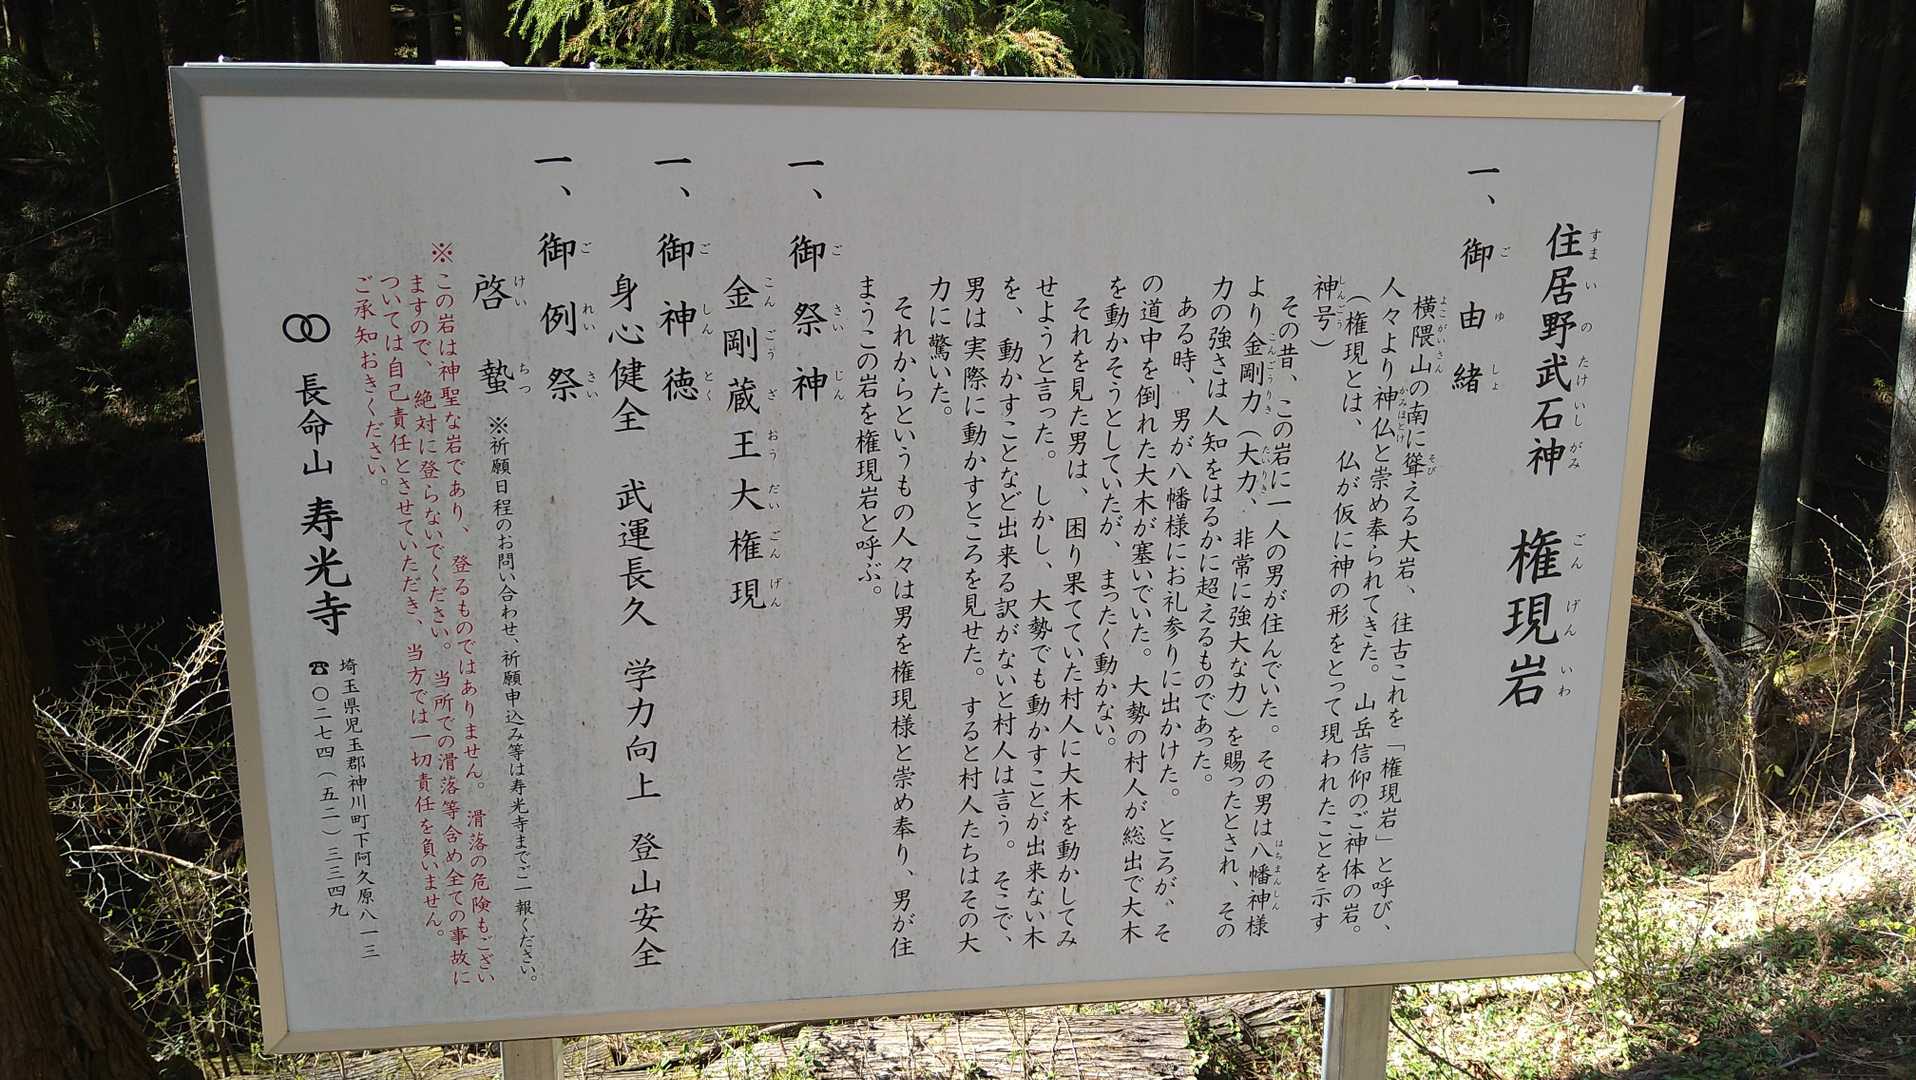 住居野武石神　権現岩
すまいのたけいしがみ　ごんげんいわ
一、御由緒
ごゆしょ
横隈山の南に聳える大岩、往古これを「権現岩」と呼び、
よこがいさん　そび
人々より神仏と崇め奉られてきた。山岳信仰のご神体の岩。
かみほとけ
（権現とは、仏が仮に神の形をとって現われたことを示す
神号）
しんごう
その昔、この岩に一人の男が住んでいた。その男は八幡神様
はちまんしん
より金剛力（大力、非常に強大な力）を賜ったとされ、その
こんごうりき　たいりき
力の強さは人知をはるかに超えるものであった。
ある時、男が八幡様にお礼参りに出かけた。ところが、そ
の道中を倒れた大木が塞いでいた。大勢の村人が総出で大木
を動かそうとしていたが、まったく動かない。
それを見た男は、困り果てていた村人に大木を動かしてみ
せようと言った。しかし、大勢でも動かすことが出来ない木
を、動かすことなど出来る訳がないと村人は言う。そこで、
男は実際に動かすところを見せた。すると村人たちはその大
力に驚いた。
それからというもの人々は男を権現様と崇め奉り、男が住
まうこの岩を権現岩と呼ぶ。
一、御祭神
ごさいじん
金剛蔵王大権現
こんごうざおうだいごんげん
一、御神徳
ごしんとく
身心健全　武運長久　学力向上　登山安全
一、御例祭
ごれいさい
啓蟄　※祈願日程のお問い合わせ、祈願申込み等は寿光寺までご一報ください。
けいちつ
※この岩は神聖な岩であり、登るものではありません。滑落の危険もござい
ますので、絶対に登らないでください。当所での滑落等含め全ての事故に
ついては自己責任とさせていただき、当方では一切責任を負いません。
ご承知おきください。
長命山　寿光寺
埼玉県児玉郡神川町下阿久原八一三
☎〇二七四（五二）三三四九